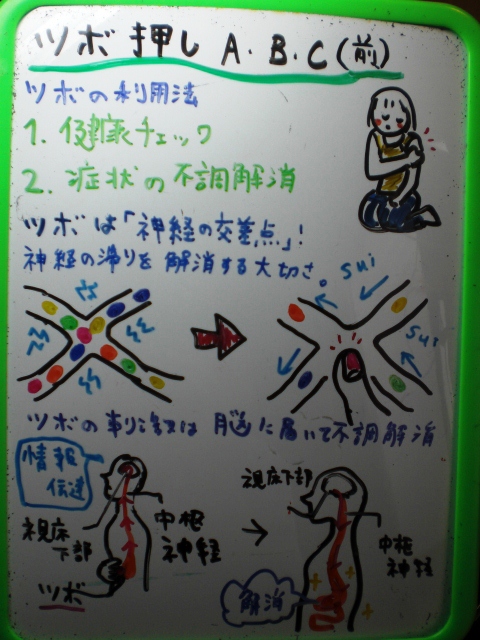 ツボ押し A・B・C(前)
ツボの利用法
1. 健康チェック
2. 症状の不調解消
ツボは「神経の交差点」!
神経の滞りを解消する大切さ。
sui
sui
ツボの刺激は脳に届いて不調解消
情報
伝達
視床
下部
中枢
神経
ツボ
視床下部
中枢
神経
解消